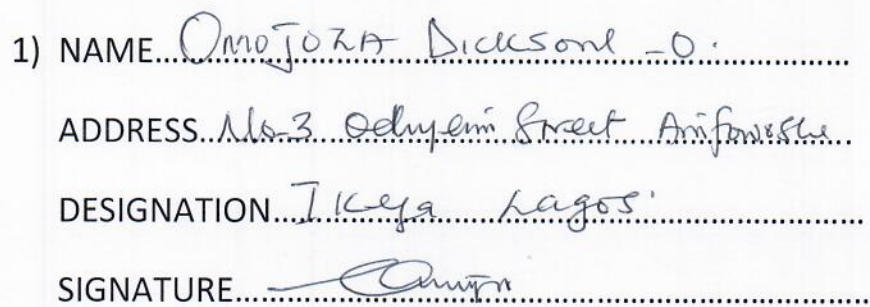 1) NAME Omojoza Dickson -O.
ADDRESS No-3 Oduyemi Street Anifowoshe
DESIGNATION Ikeja Lagos
SIGNATURE